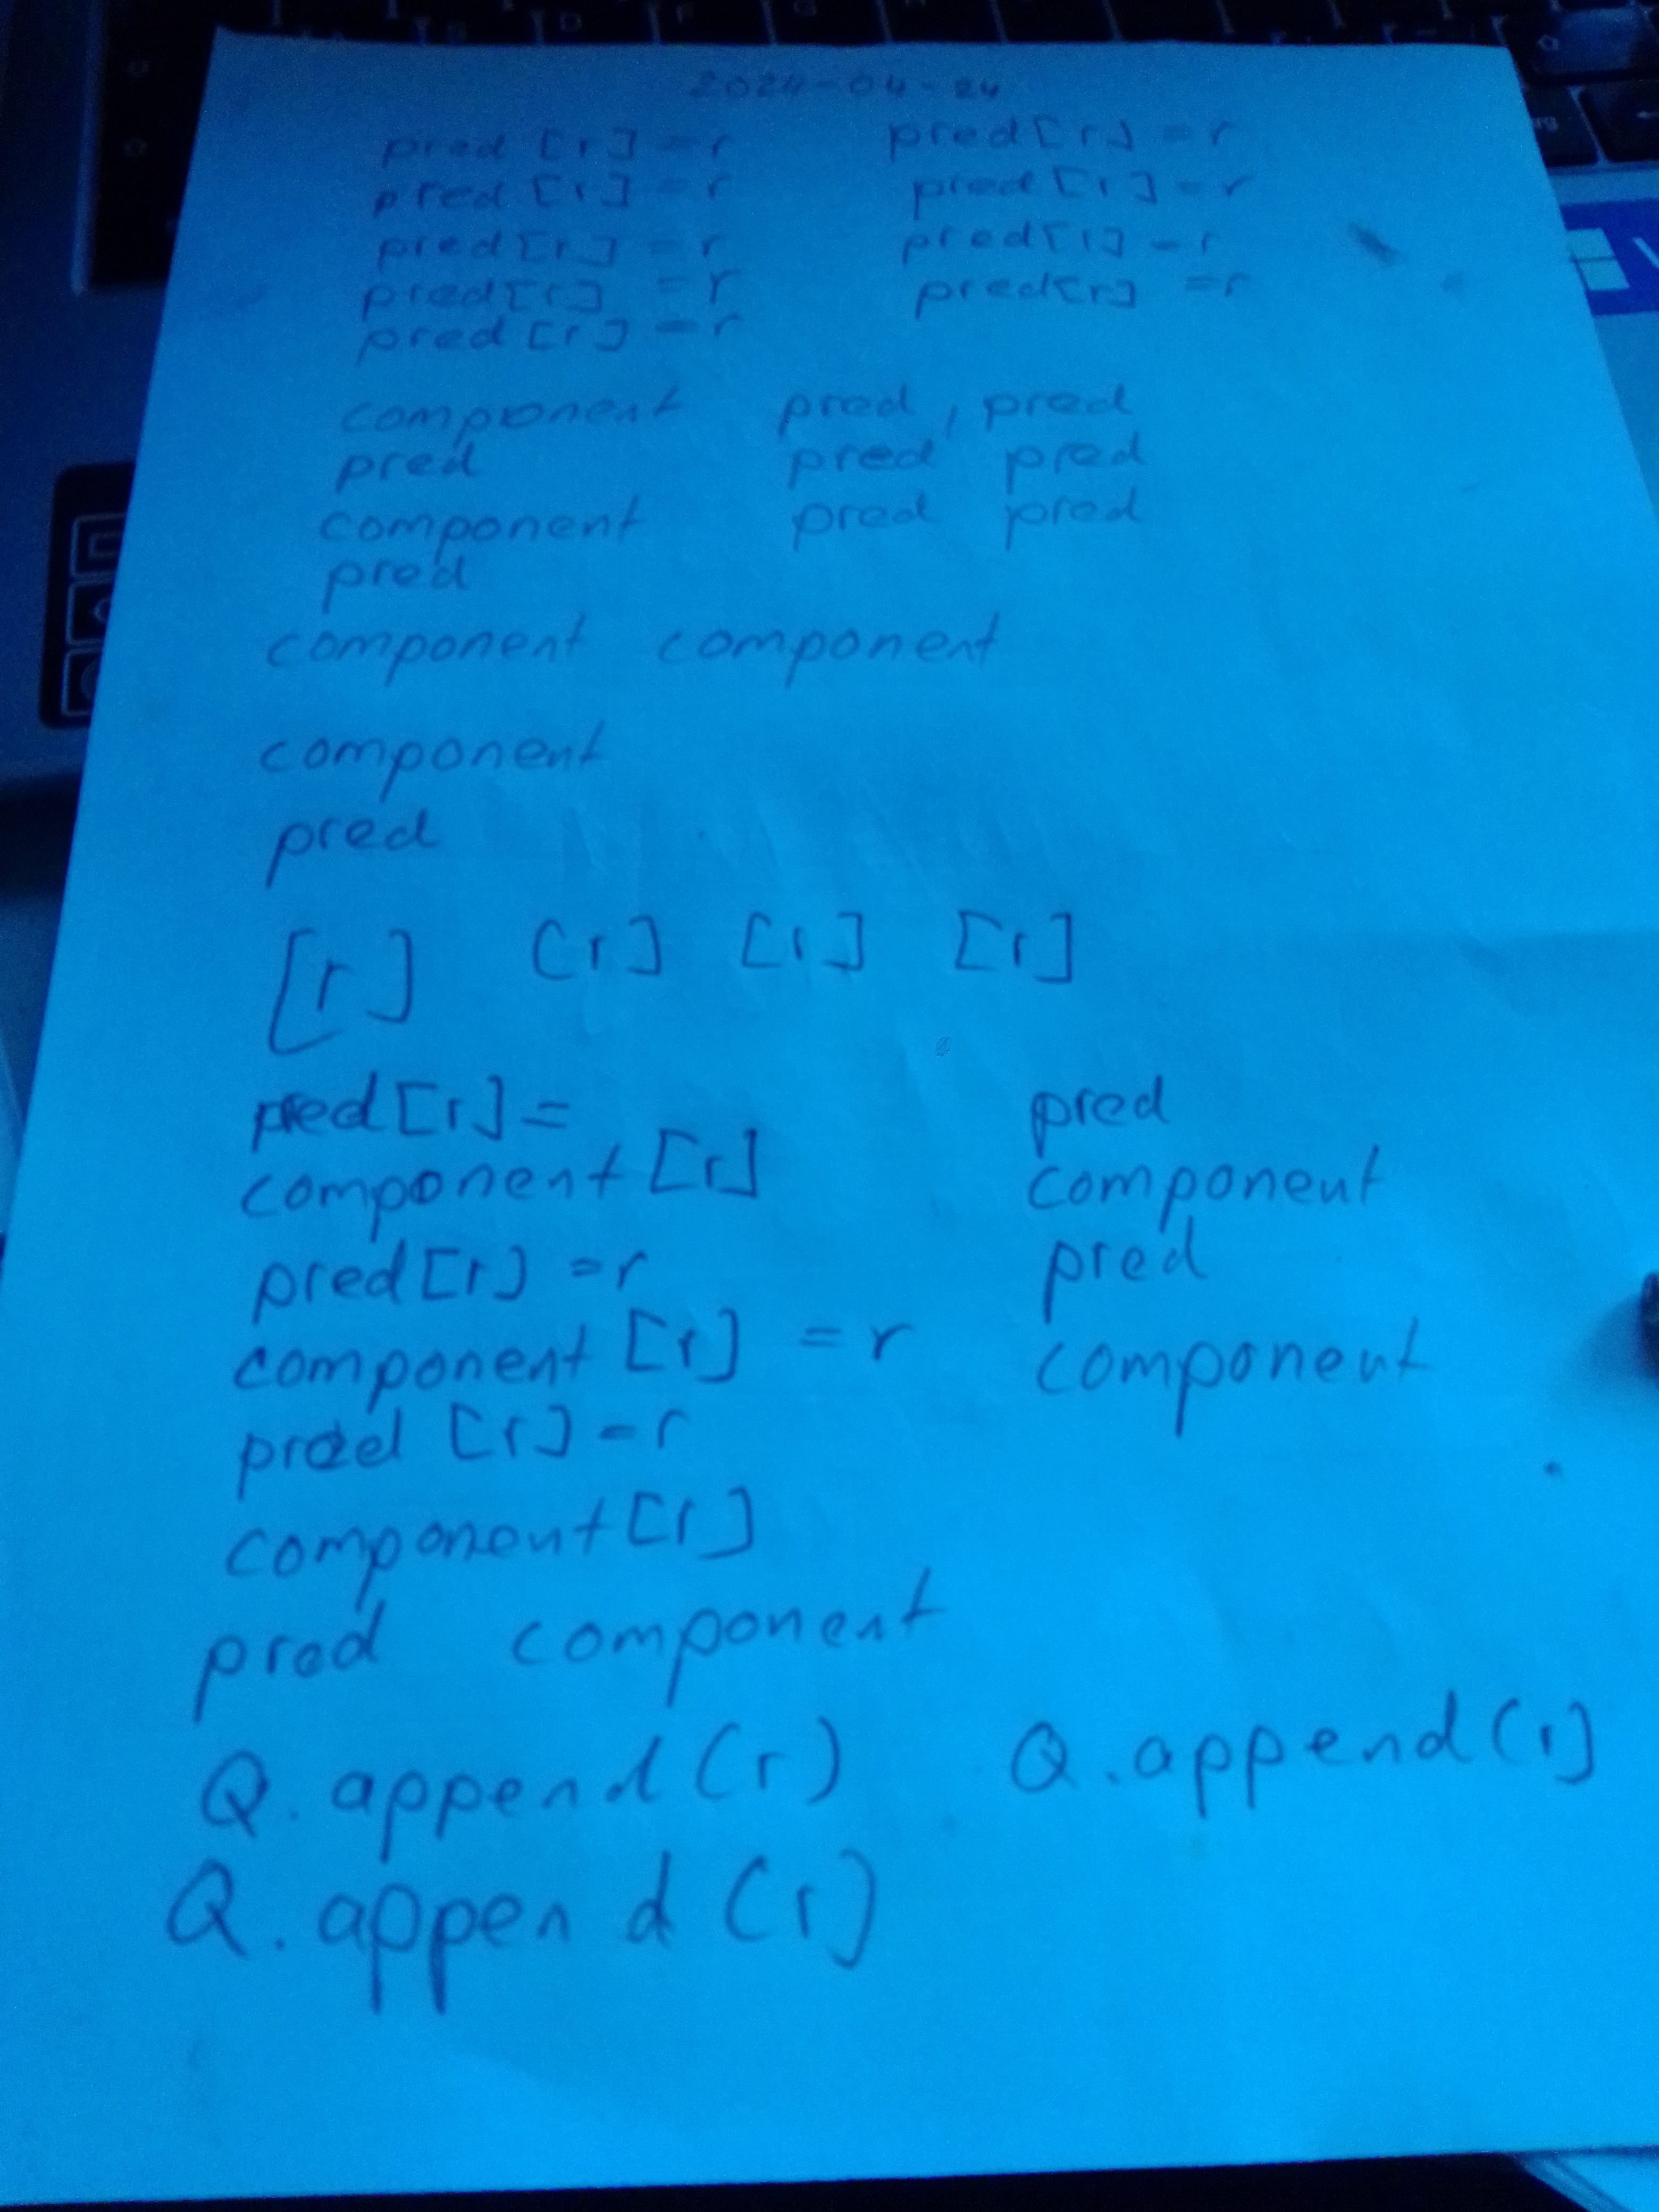 2024-04-24
pred [r] = r pred[r] = r
pred [r] = r pred [r] = r
pred[r] = r pred[r] = r
pred[r] = r pred[r] = r
pred [r] = r
component pred, pred
pred pred pred
component pred pred
pred
component component
component
pred
[r] [r] [r] [r]
pred[r] = pred
component [r] component
pred[r] = r pred
component [r] = r component
pred [r] = r
component[r]
pred component
Q.append(r) Q.append(r)
Q.append(r)